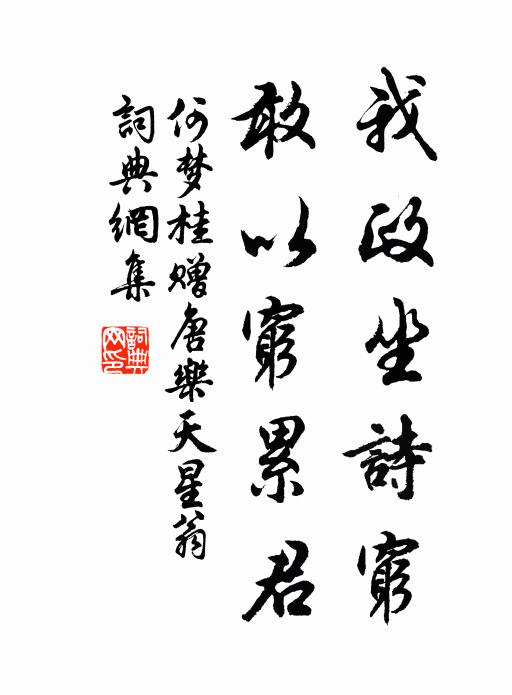 我政坐詩窮
敢以窮累君
何梦桂赠唐樂天星翁
詞典網集
詞典网印